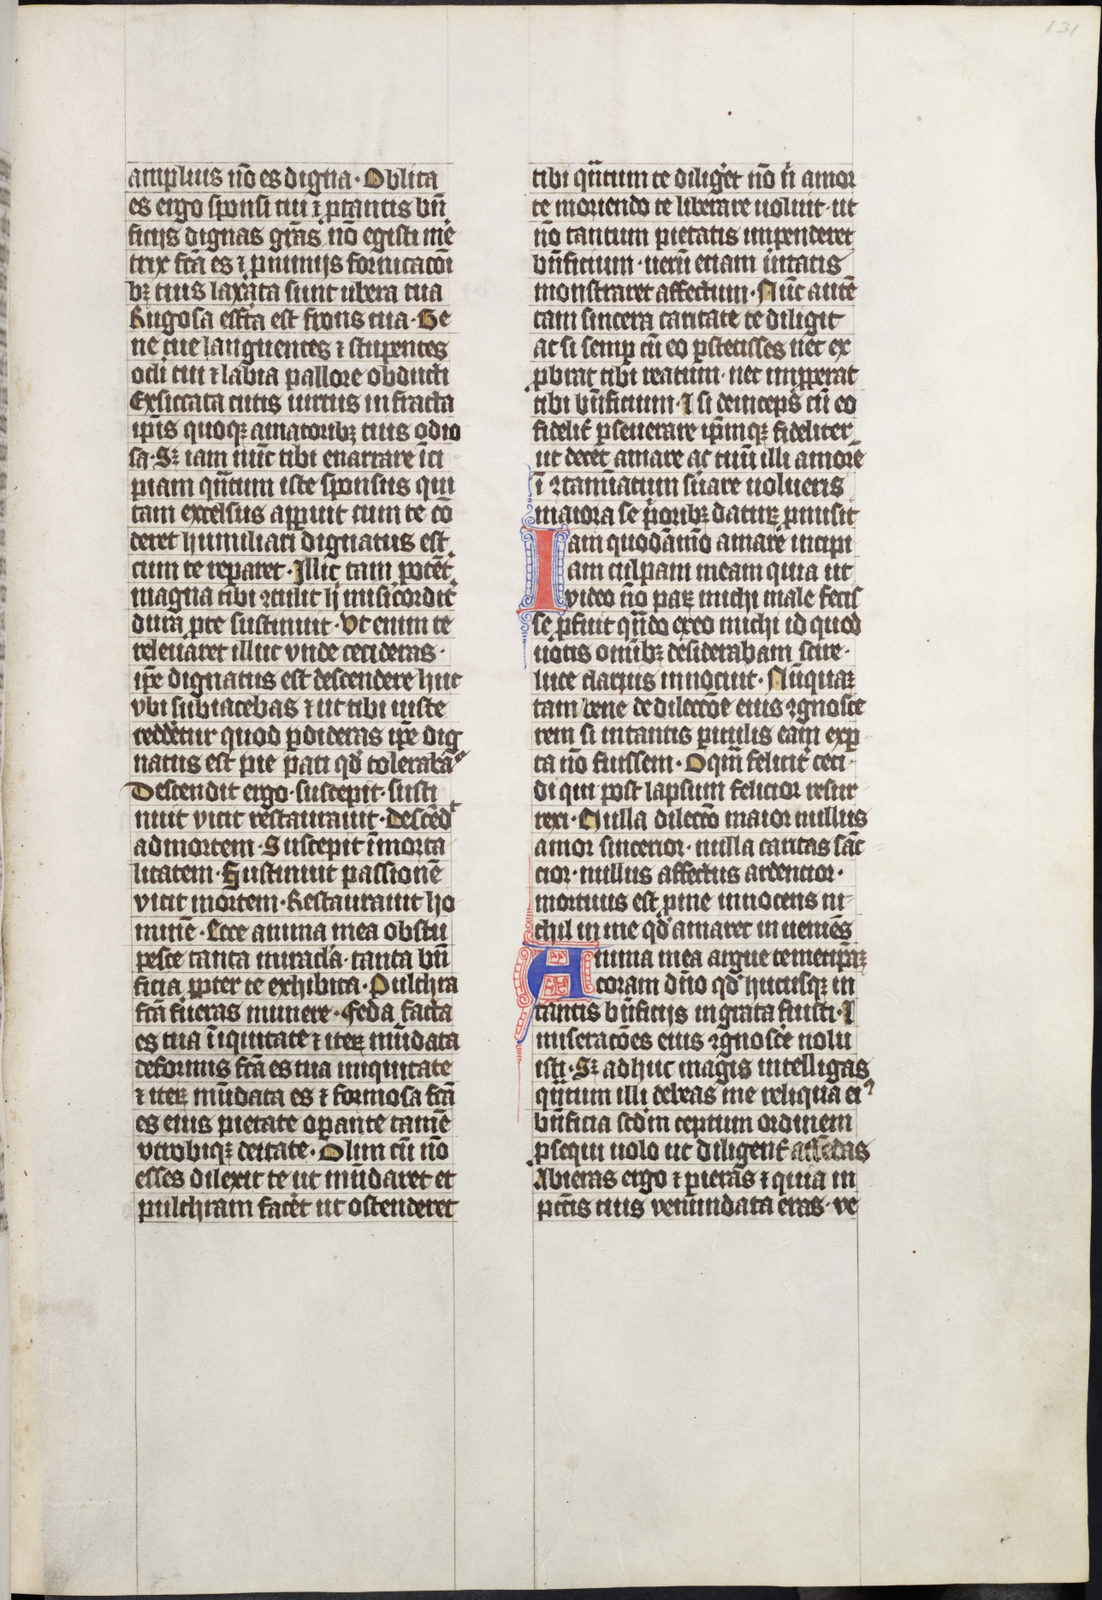 131
amplius nō es digna · Oblita
es ergo sponsi tui ⁊ ꝑ tantis bn̄
ficijs dignas gr̄as nō egisti me
trix fc̄a es ⁊ ꝓximijs fornicacōi
bꝫ tuis laxata sunt ubera tua
Rugosa eff̄ta est frons tua · Ge
ne tue languentes ⁊ stupentes
ocl̄i tui ⁊ labia pallore obducti
Exsiccata cutis virtus infracta
ip̄is quoqꝫ amatoribꝫ tuis odio
sa · Sꝫ iam nūc tibi enarrare īci
piam qn̄tum iste sponsus qui
tam excelsus apparuit cum te cō
deret humiliari dignatus est
cum te reparet · Illic tam potēt
magna tibi ꝯtulit h̄ mīsicordit̄
dura ꝓ te sustinuit · Vt enim te
releuaret illuc vnde cecideras ·
ip̄e dignatus est descendere huc
vbi subiacebas ⁊ ut tibi iuste
reddētur quod ꝑdideras ip̄e dig
natus est pie pati qd̄ tolerabā
Descendit ergo · suscepit · susti
nuit vicit restaurauit · Descēd̄
ad mortem · Suscepit īmorta
litatem · Sustinuit passionē
vicit mortem · Restaurauit ho
minē · Ecce anima mea obstu
pesce tanta miracl̄a · tanta bn̄
ficia ꝓpter te exhibita · Pulchra
fc̄a fueras munere · feda facta
es tua īiquitate ⁊ iteꝝ mūdata
deformis fc̄a es tua iniquitate
⁊ iteꝝ mūdata es ⁊ formosa fc̄a
es eius pietate oꝑante tamē
vtrobiqꝫ deitate · Olim cū nō
esses dilexit te ut mūdaret et
pulchram facēt ut ostenderet
tibi qn̄tum te diligēt nō n̄ amor
te moriendo te liberare uoluit · ut
nō tantum pietatis impenderet
bn̄ficium · uerū etiam
monstraret affectum · Nūc autē
tam sincera caritate te diligit
ac si semꝑ cū eo ꝑstetisses nec ex
ꝓbrat tibi reatum · nec imꝓperat
tibi bn̄ficium · I si deinceps cū eo
fidelit̄ ꝑseuerare ip̄mqꝫ fideliter
ut decet amare ac tuū illi amorē
ī ꝯtaīatum s̄uare uolueris
maiora se p̄oribꝫ datuꝝ ꝓmisit
Iam quodāmō amare incipi
am culpam meam quia ut
video nō paꝝ michi male fecis
se ꝓfuit qn̄do ex eo michi id quod
uotis omībꝫ desiderabam scire ·
luce clarius innotuit · Nūquaꝫ
tam bene de dilecc̄oe eius ꝯgnosce
rem si in tantis ꝑiculis eam exꝑ
ta nō fuissem · O qm̄ felicit̄ ceci
di qui post lapsum felicior resur
rexi · Nulla dilecc̄o maior nullus
amor sincerior · nulla caritas sāc
cior · nullus affectus ardencior ·
mortuus est ꝓ me innocens ni
chil in me qd̄ amaret inueniēs
Anima mea argue temetip̄aꝫ
coram dn̄o qd̄ hucusqꝫ in
tantis bn̄ficijs ingrata fuisti · I
miseracōes eius ꝯgnoscē nolu
isti · Sꝫ adhuc magis intelligas
qn̄tum illi debeas me reliqua ei⁹
bn̄ficia scd̄m ceptum ordinem
ꝓsequi uolo ut diligent̄
Abieras ergo ⁊ pieras ⁊ quia in
pcc̄is tuis venundata eras · ve